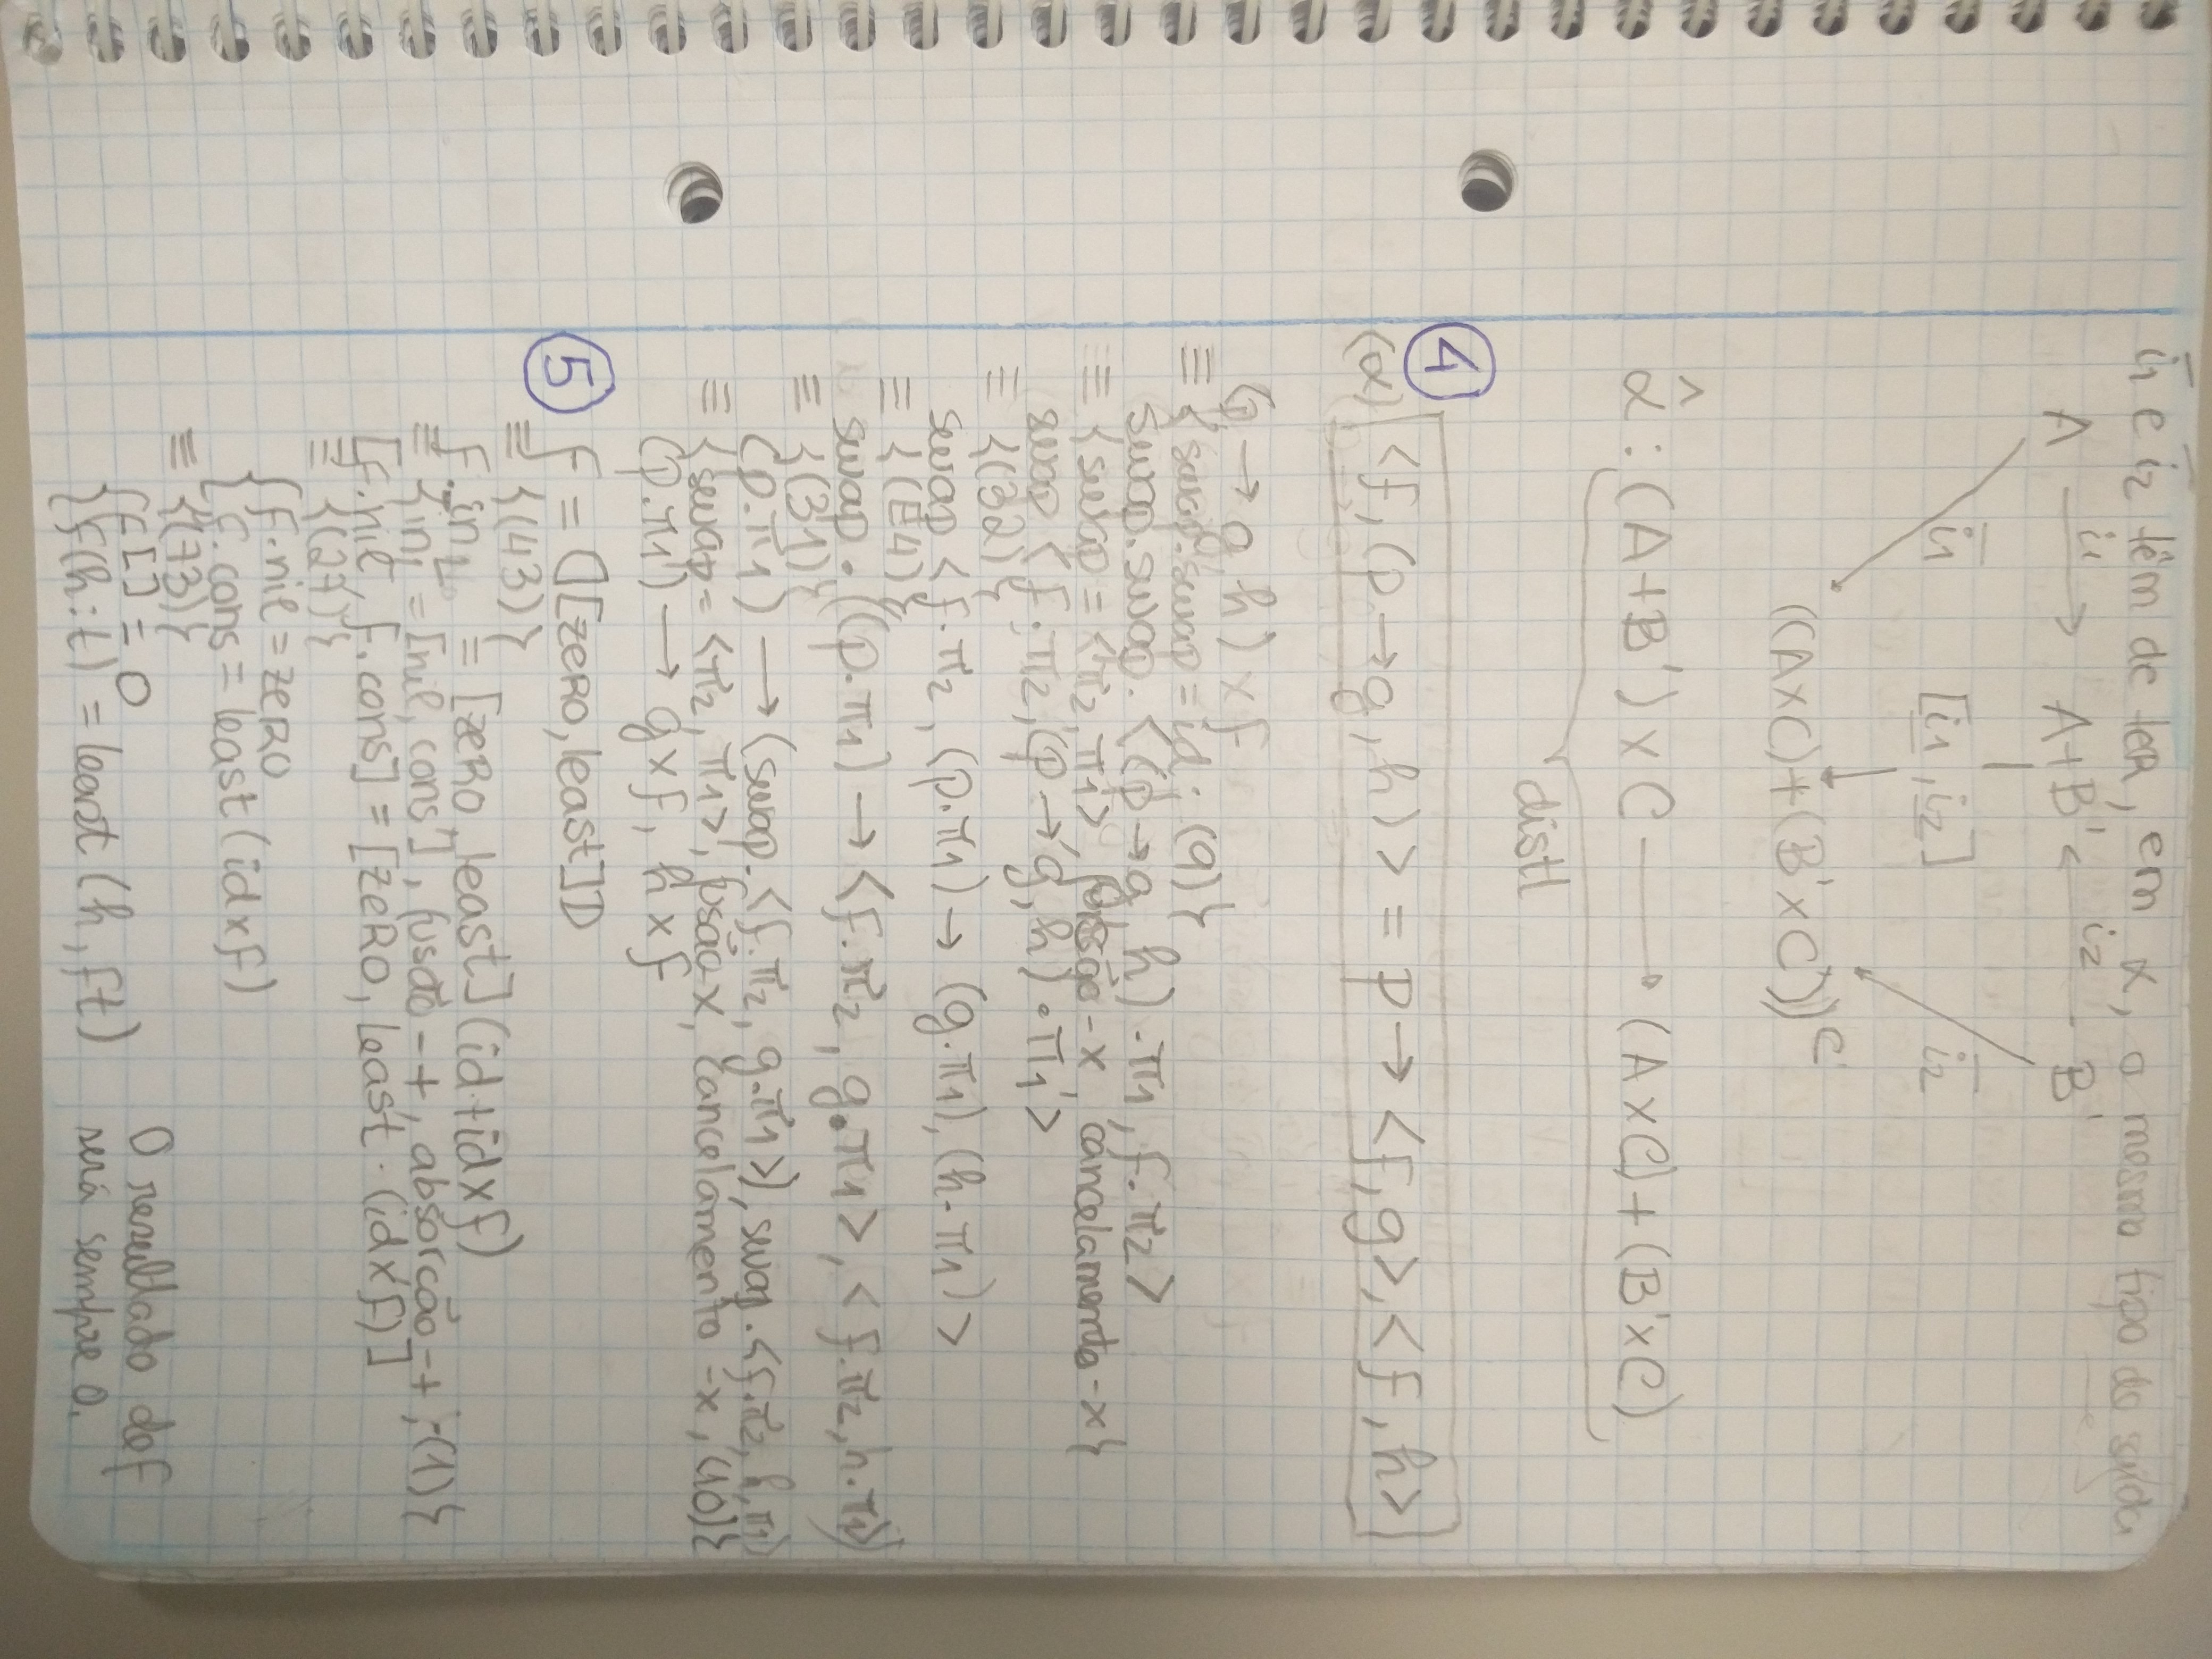 i̅1 e i̅2 têm de ter, em α, o mesmo tipo de saída
A i1 A+B' i2 B'
i̅1 [i̲1, i̲2] i̅2
((A×C)+(B'×C))^C
α̂ : (A+B')×C ⟶ (A×C)+(B'×C)
distl
4
(α) <f,(p→g,h)> = p→<f,g>,<f,h>
(p→g,h)×f
≡ {swap.swap=id; (9)}
swap.swap.<(p→g,h).π1, f.π2>
≡ {swap=<π2,π1>, fusão-x, cancelamento-x}
swap <f.π2,(p→g,h).π1>
≡ {(32)}
swap <f.π2,(p.π1)→(g.π1),(h.π1)>
≡ {(E4)}
swap.((p.π1)→<f.π2, g.π1>,<f.π2,h.π1>)
≡ {(31)}
(p.π1)⟶(swap.<f.π2, g.π1>),swap.<f.π2,h,π1>
≡ {swap=<π2,π1>, fusão-x, cancelamento-x, (10)}
(p.π1)⟶ g×f, h×f
5 f = ⦇[zero,least]⦈
≡ {(43)}
f.inL = [zero,least](id+id×f)
≡ {inL=[nil,cons], fusão-+, absorção-+;(1)}
[f.nil, f.cons] = [zero, least.(id×f)]
≡ {(27)}
{f.nil=zero
{f.cons=least(id×f)
≡ {(73)}
{f[] = 0
{f(h:t) = least(h,ft)
O resultado de f
será sempre 0.